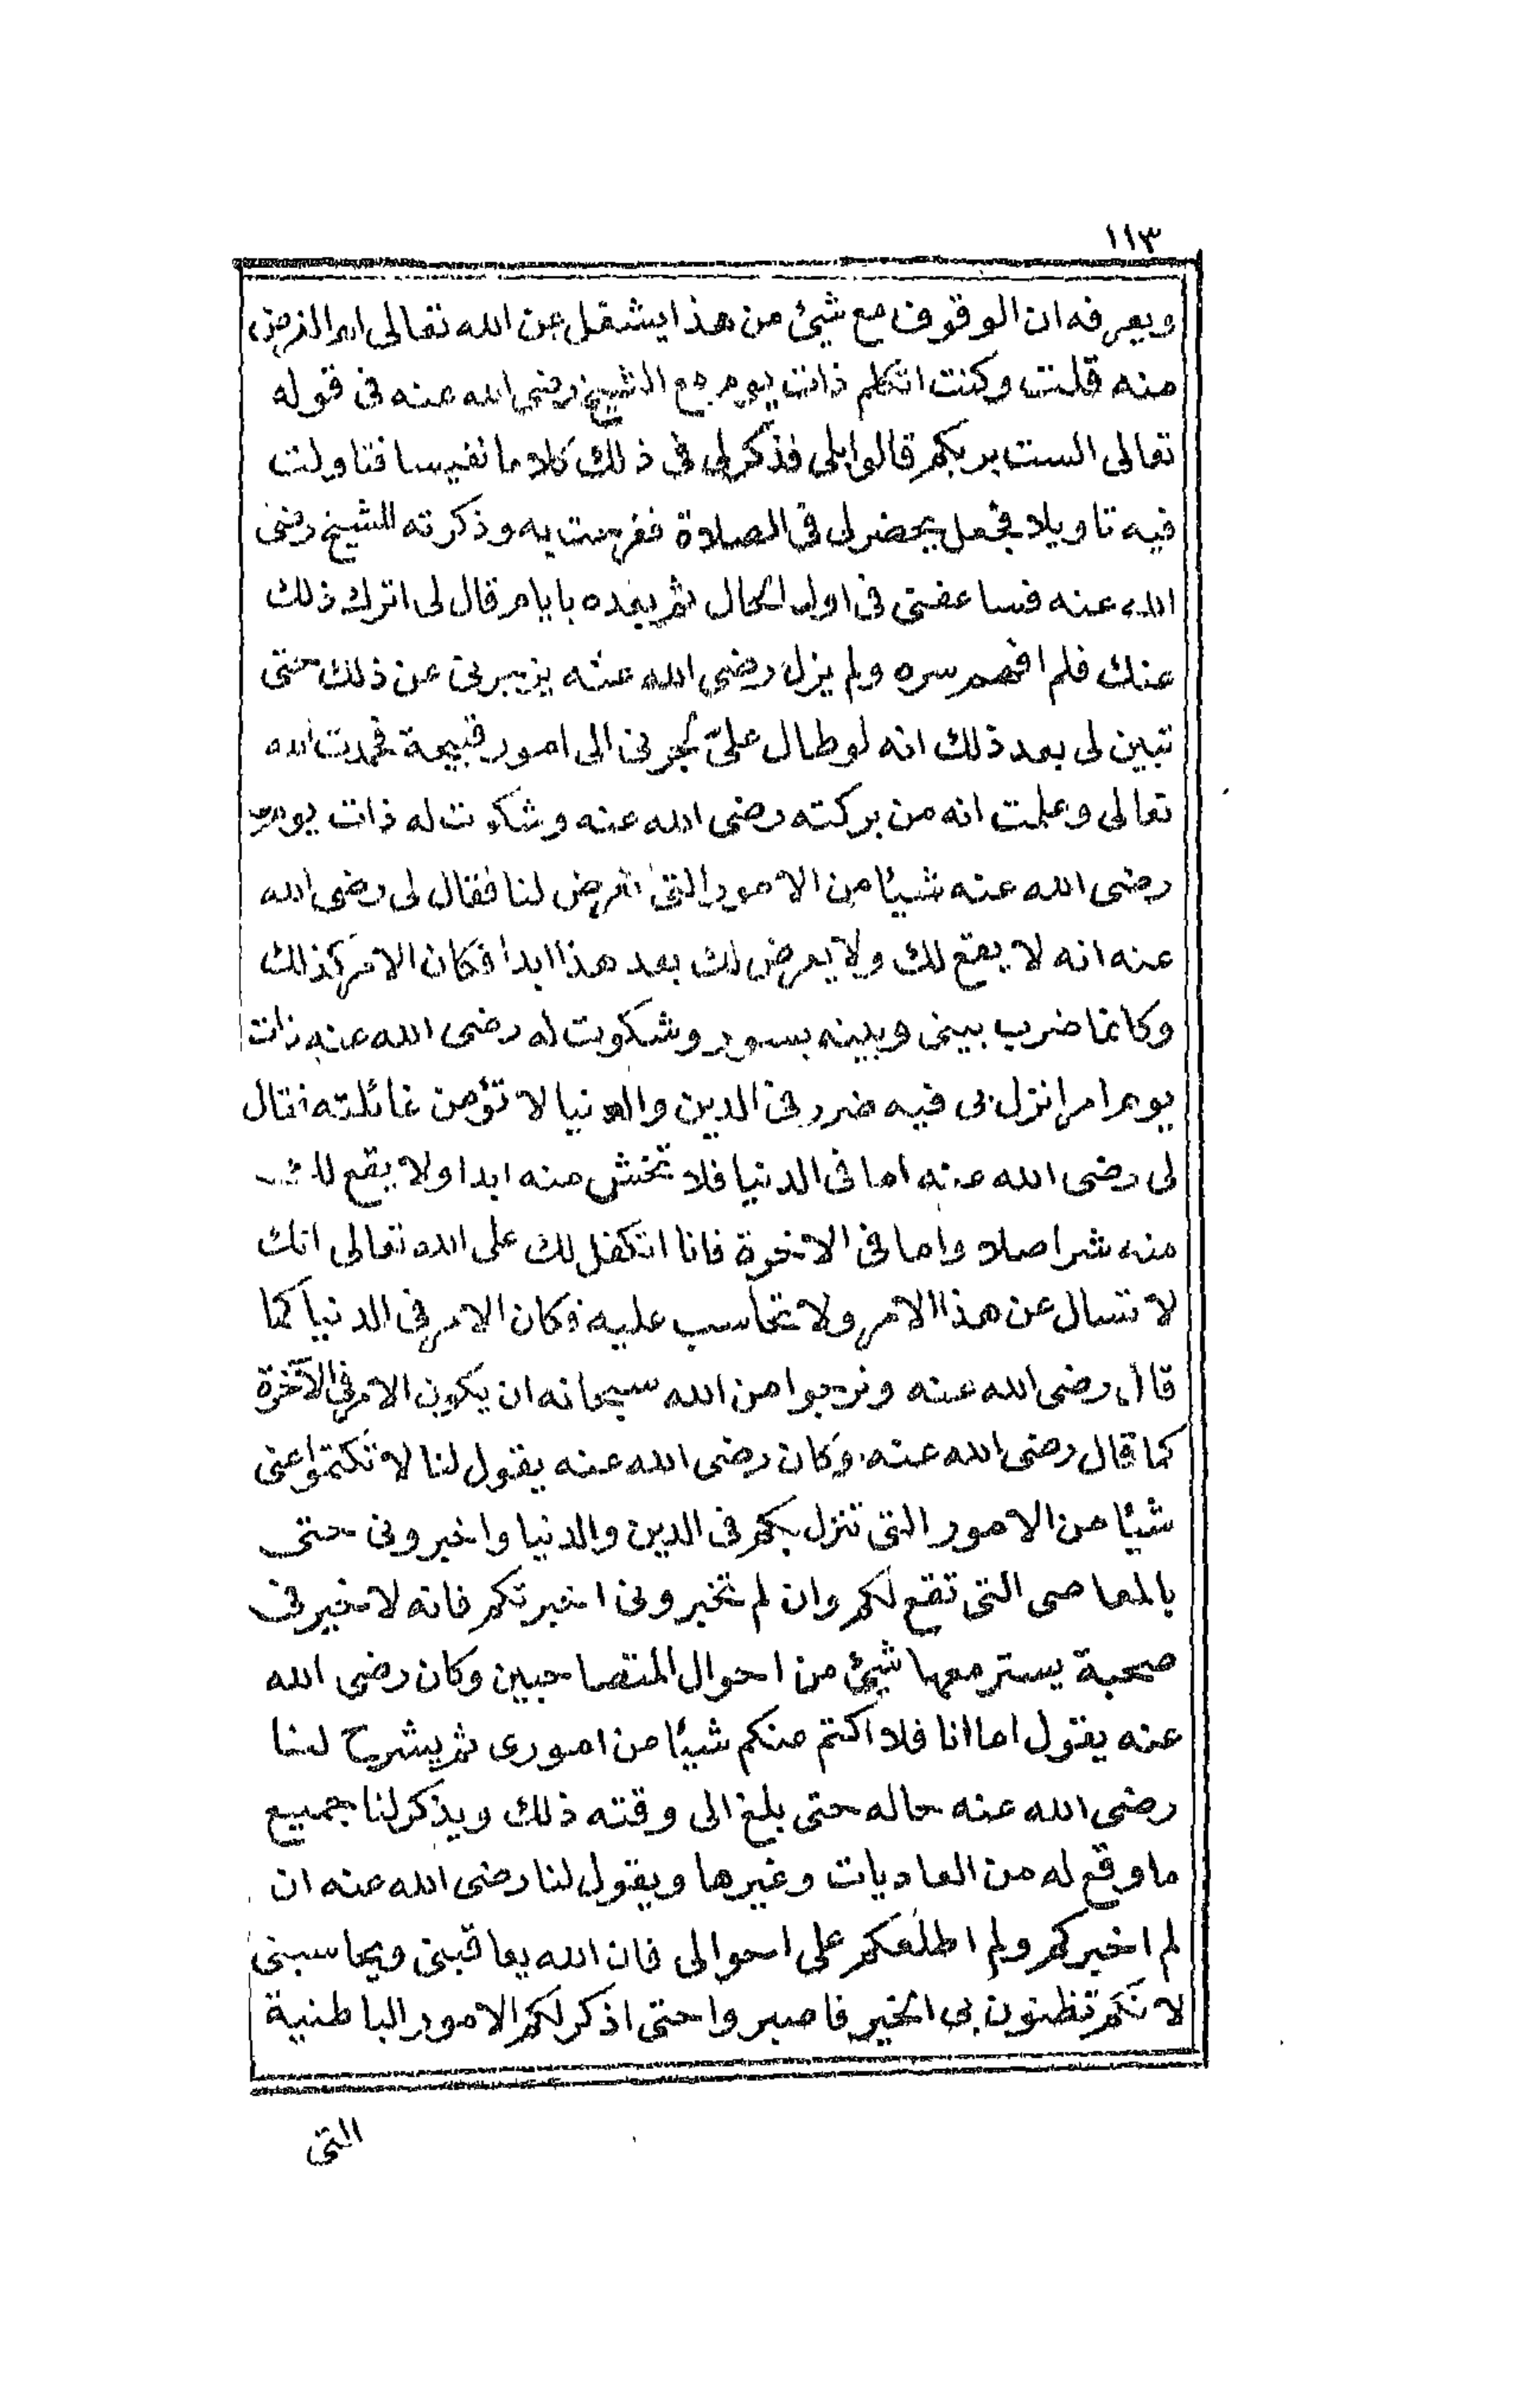 ١١٣
ويعرفه ان الوقوف مع شيئ من هذا يشغل عن الله تعالى اهـ الغرض
منه قلت وكنت اتكلم ذات يوم مع الشيخ رضى الله عنه فى قوله
تعالى الست بربكم قالوا بلى فذكر لى فى ذلك كلاما نفيسا فتاولت
فيه تاويلا فجعل يحضر لى فى الصلاة ففرحت به وذكرته للشيخ رضى
الله عنه فساعفنى فى اول الحال ثم بعده بايام قال لى اترك ذلك
عنك فلم افهم سره ولم يزل رضى الله عنه يزبرنى عن ذلك حتى
تبين لى بعد ذلك انه لو طال علىّ لجرنى الى امور قبيحة فحمدت الله
تعالى وعلمت انه من بركته رضى الله عنه وشكوت له ذات يوم
رضى الله عنه شيئا من الامور التى تعرض لنا فقال لى رضى الله
عنه انه لا يقع لك ولا يعرض لك بعد هذا ابدا فكان الامر كذلك
وكانما ضرب بينى وبينه بسور وشكوت له رضى الله عنه ذات
يوم امرا نزل بى فيه ضرر فى الدين والدنيا لا تؤمن غائلته فقال
لى رضى الله عنه اما فى الدنيا فلا تخش منه ابدا ولا يقع لك
منه شر اصلا واما فى الاخرة فانا اتكفل لك على الله تعالى انك
لا تسال عن هذا الامر ولا تحاسب عليه فكان الامر فى الدنيا كما
قال رضى الله عنه ونرجوا من الله سبحانه ان يكون الامر فى الآخرة
كما قال رضى الله عنه وكان رضى الله عنه يقول لنا لا تكتموا عنى
شيئا من الامور التى تنزل بكم فى الدين والدنيا واخبرونى حتى
بالمعاصى التى تقع لكم وان لم تخبرونى اخبرتكم فانه لا خير فى
صحبة يستر معها شيئ من احوال المتصاحبين وكان رضى الله
عنه يقول اما انا فلا اكتم منكم شيئا من امورى ثم يشرح لنا
رضى الله عنه حاله حتى بلغ الى وقته ذلك ويذكر لنا جميع
ما وقع له من العاديات وغيرها ويقول لنا رضى الله عنه ان
لم اخبركم ولم اطلعكم على احوالى فان الله يعاقبنى ويحاسبنى
لانكم تظنون بى الخير فاصبروا حتى اذكر لكم الامور الباطنية
التى